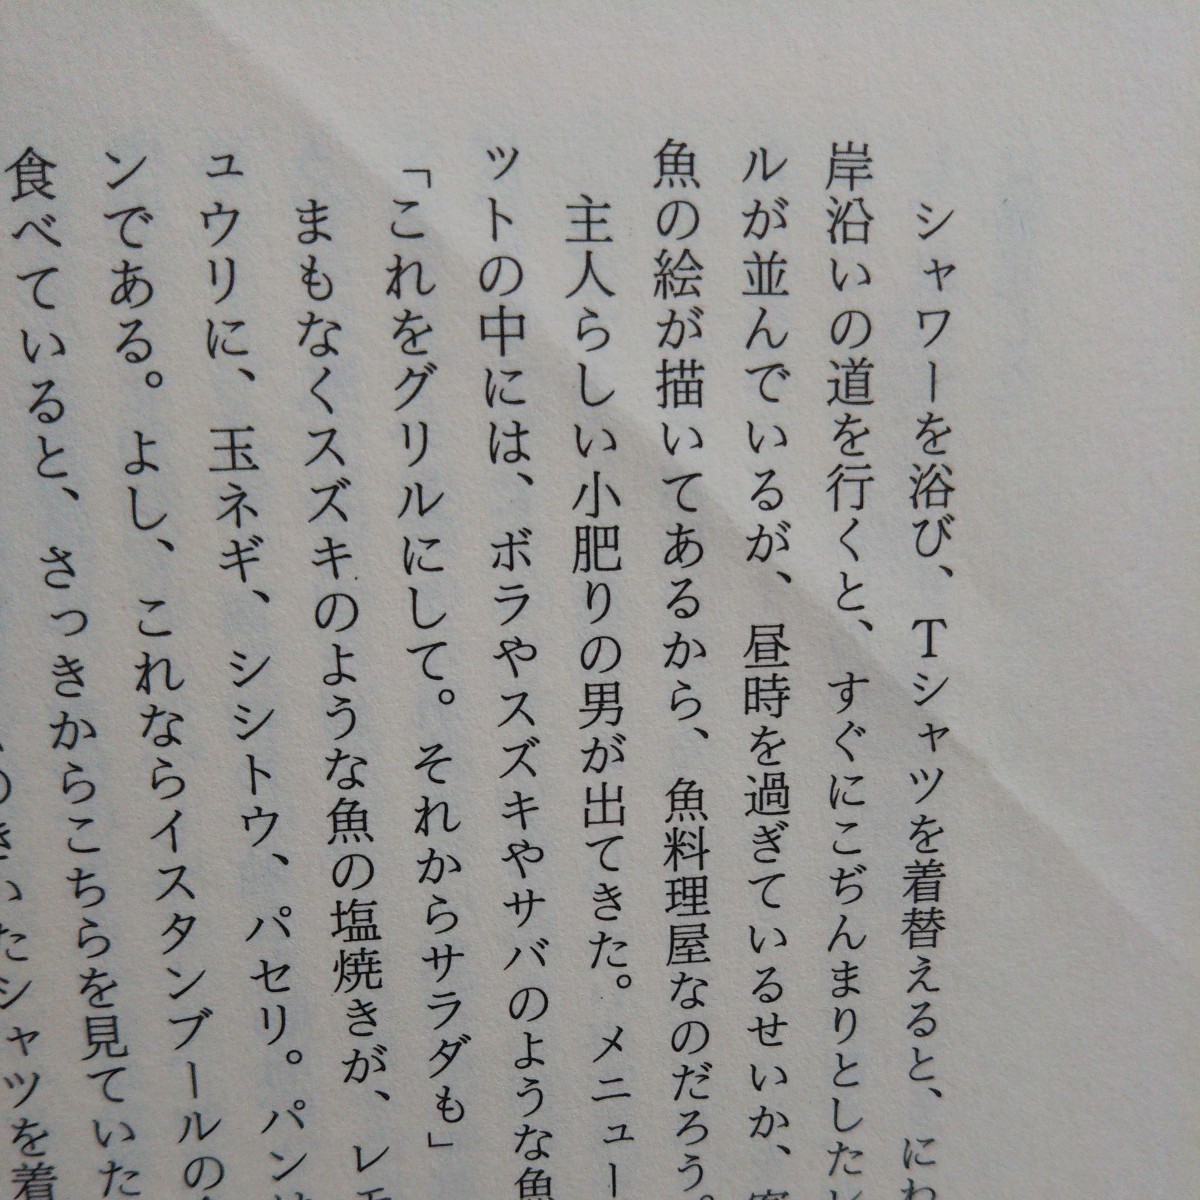 シャワーを浴び、Tシャツを着替えると、にわ
岸沿いの道を行くと、すぐにこぢんまりとした
ルが並んでいるが、昼時を過ぎているせいか、
魚の絵が描いてあるから、魚料理屋なのだろう。
主人らしい小肥りの男が出てきた。メニュー
ットの中には、ボラやスズキやサバのような魚
「これをグリルにして。それからサラダも」
まもなくスズキのような魚の塩焼きが、レモ
ュウリに、玉ネギ、シシトウ、パセリ。パンは
ンである。よし、これならイスタンブールの
食べていると、さっきからこちらを見ていた
たシャツを着